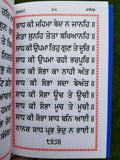 ਸਾਧ ਕੀ ਮਹਿਮਾ ਬੇਦ ਨ ਜਾਨਹਿ ॥
ਜੇਤਾ ਸੁਨਹਿ ਤੇਤਾ ਬਖਿਆਨਹਿ ॥
ਸਾਧ ਕੀ ਉਪਮਾ ਤਿਹੁ ਗੁਣ ਤੇ ਦੂਰਿ ॥
ਸਾਧ ਕੀ ਉਪਮਾ ਰਹੀ ਭਰਪੂਰਿ ॥
ਸਾਧ ਕੀ ਸੋਭਾ ਕਾ ਨਾਹੀ ਅੰਤ ॥
ਸਾਧ ਕੀ ਸੋਭਾ ਸਦਾ ਬੇਅੰਤ ॥
ਸਾਧ ਕੀ ਸੋਭਾ ਊਚ ਤੇ ਊਚੀ ॥
ਸਾਧ ਕੀ ਸੋਭਾ ਮੂਚ ਤੇ ਮੂਚੀ ॥
ਸਾਧ ਕੀ ਸੋਭਾ ਸਾਧ ਬਨਿ ਆਈ ॥
ਨਾਨਕ ਸਾਧ ਪ੍ਰਭ ਭੇਦੁ ਨ ਭਾਈ ॥